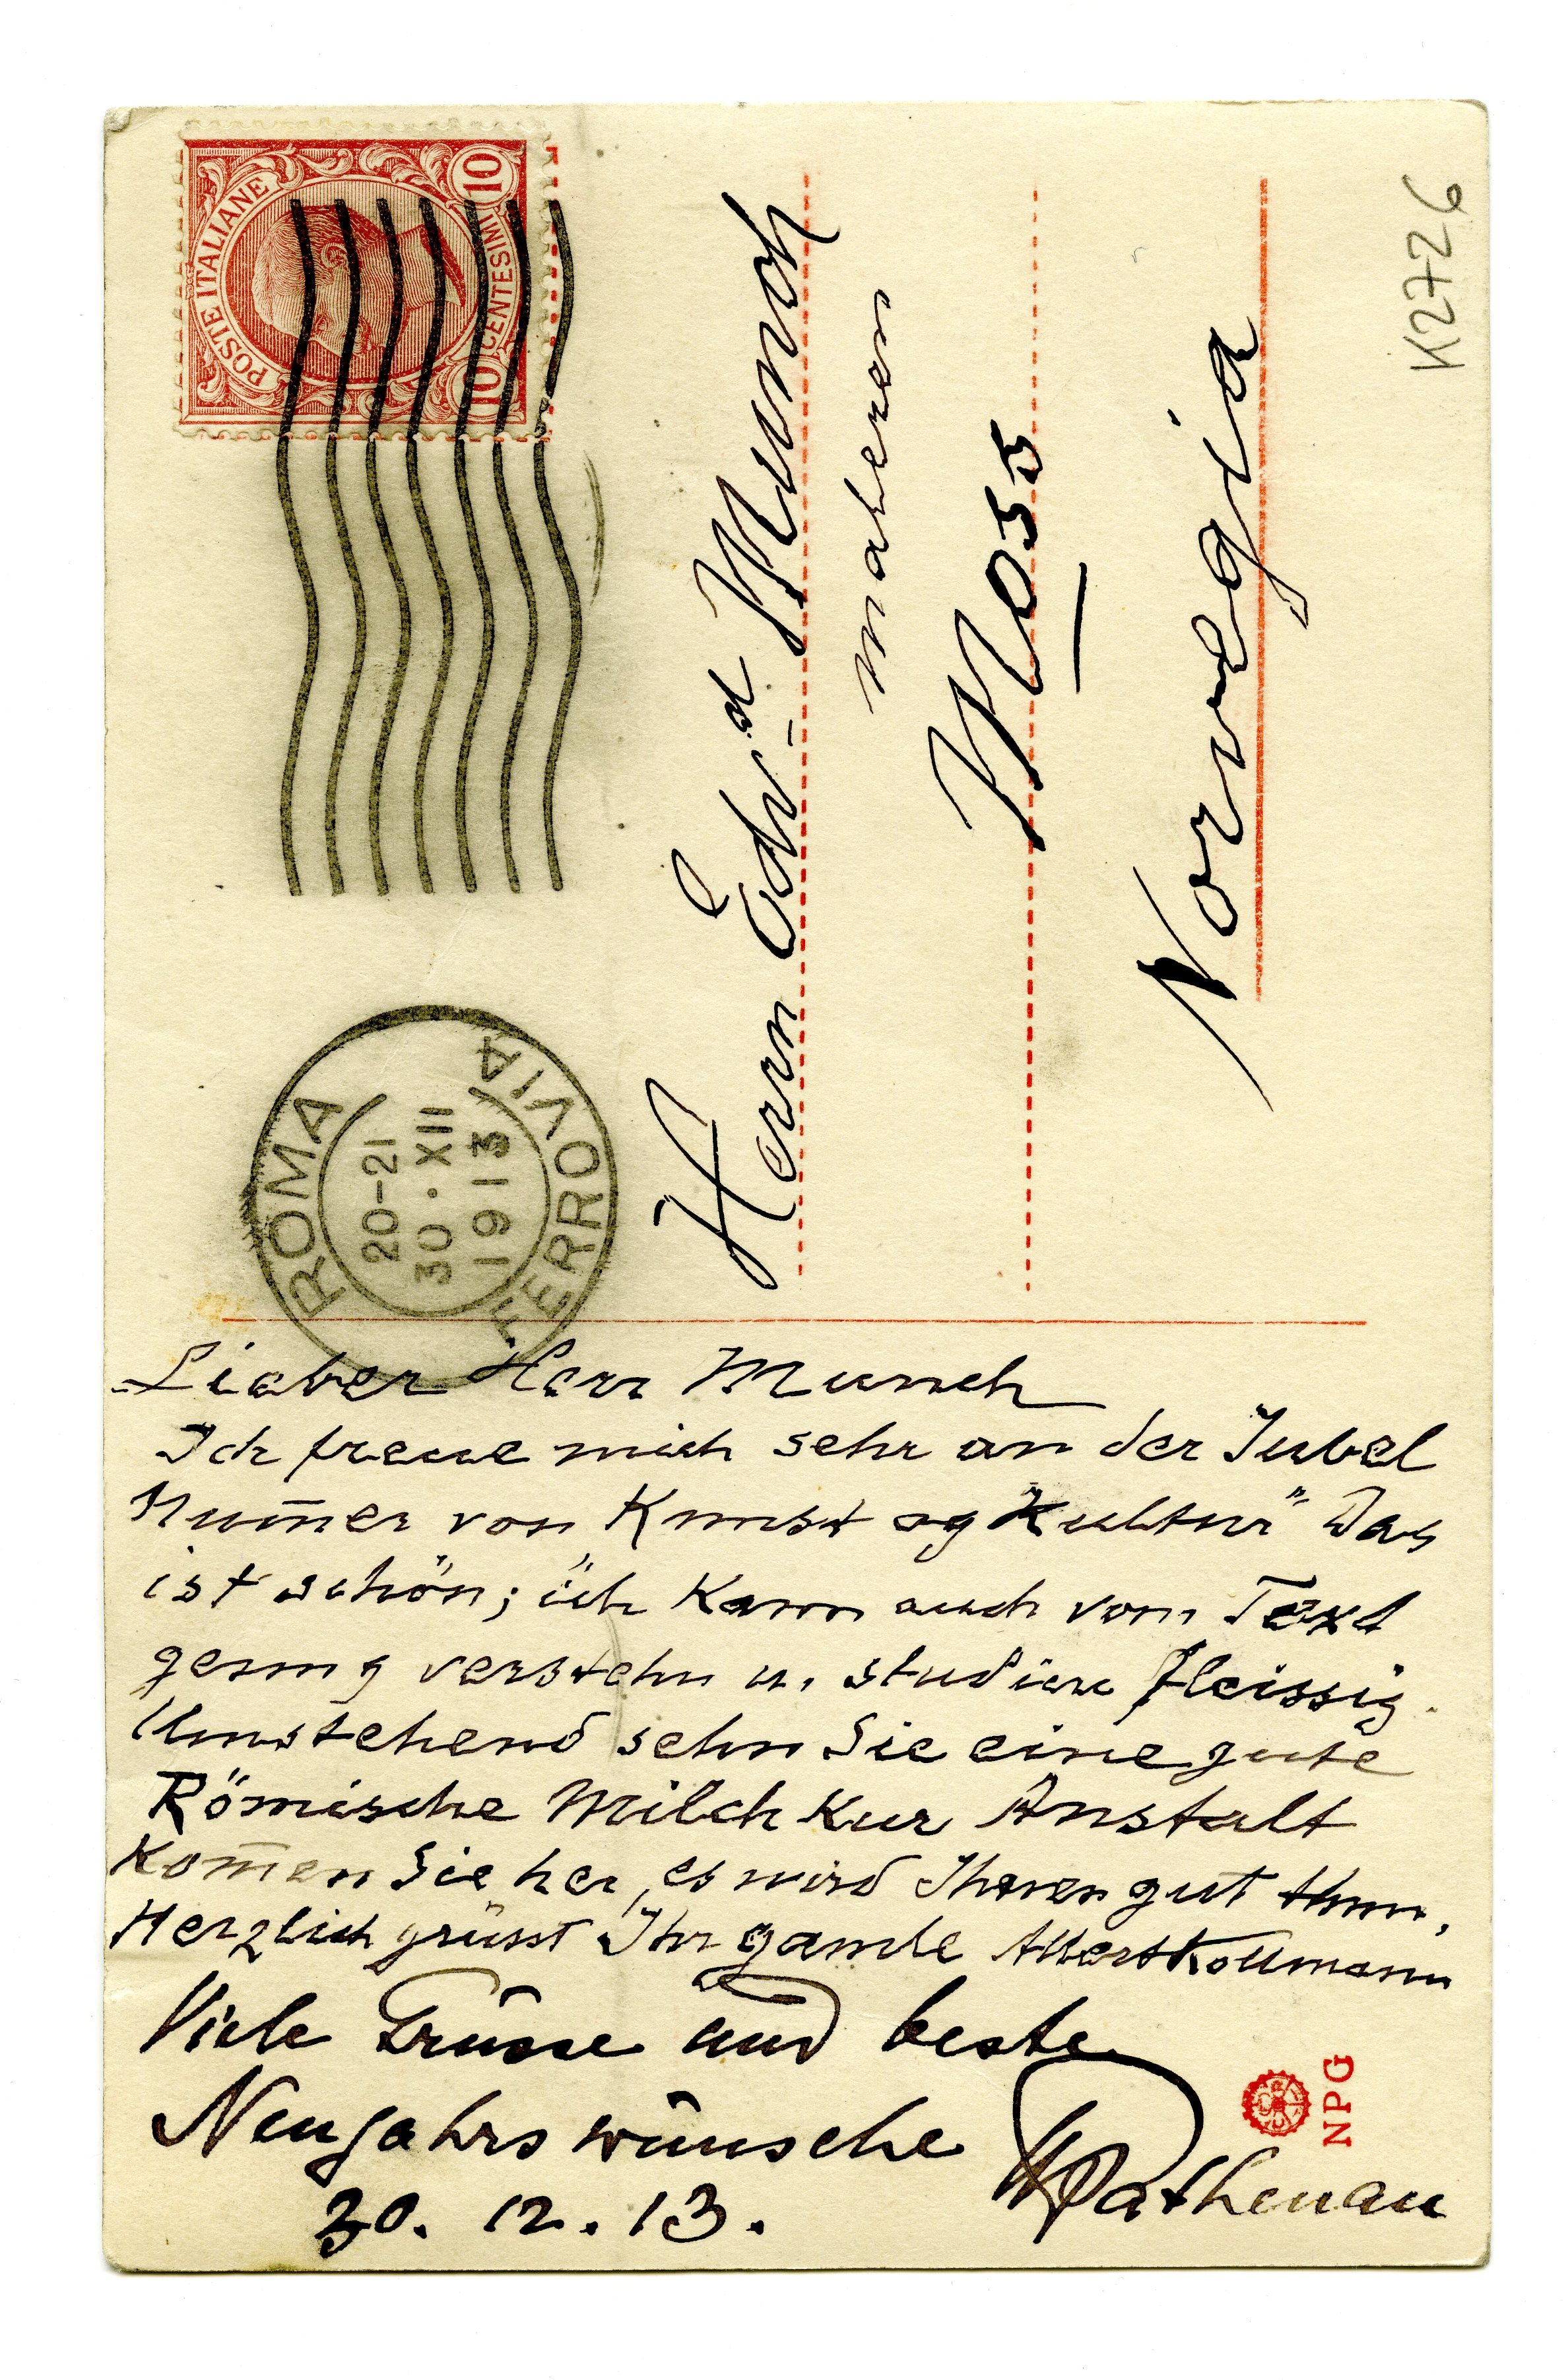 POSTE ITALIANE
10 CENTESIMI 10
ROMA
20-21
30·XII
1913
FERROVIA
Herrn Edv_d Munch
maleren
Moss
Norvegia
K2726
Lieber Herr Munch
Ich freue mich sehr an der Jubel
Num̄er von Kunst og Kultur" Das
ist schön; ich kann auch vom Text
genug verstehn u. studiere fleissig.
Umstehend sehn Sie eine gute
Römische Milch Kur Anstalt
Kom̄en Sie her, es wird Ihnen gut thun,
Herzlich grüsst Ihr gamle Albert Kollmann
Viele Grüsse und beste
Neujahrswünsche
WRathenau
30. 12. 13.
NPG